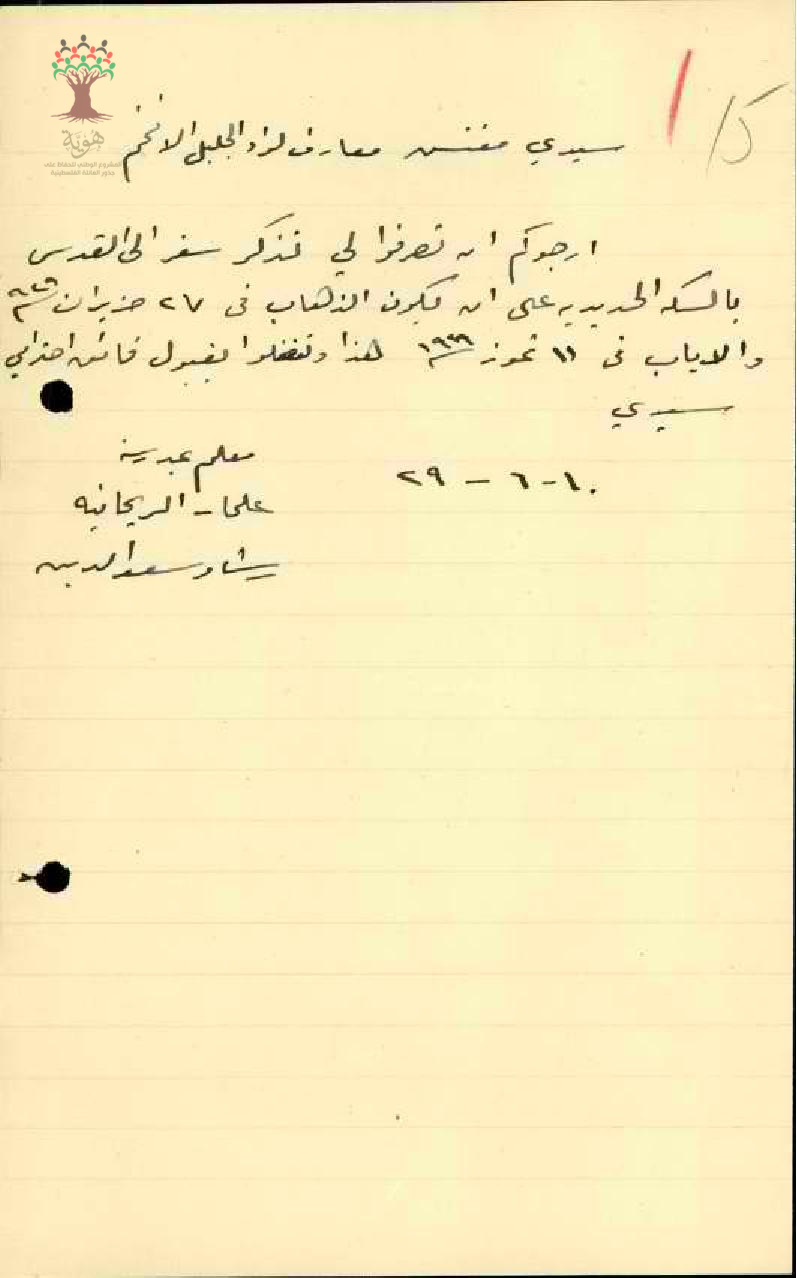 15
هوية
المشروع الوطني للحفاظ على
جذور العائلة الفلسطينية
سيدي مفتش معارف لواء الجليل الافخم
ارجوكم ان تصرفوا لي تذكر سفر الى القدس
بالسكه الحديديه على ان يكون الذهاب في ٢٧ حزيران ٩٢٩
والاياب في ١١ تموز ١٩٢٩ هذا وتفضلوا بقبول فائق احترامي
سيدي
معلم مدرسة
١٠-٦-٢٩
علما الريحانيه
رشاد سعد الدين